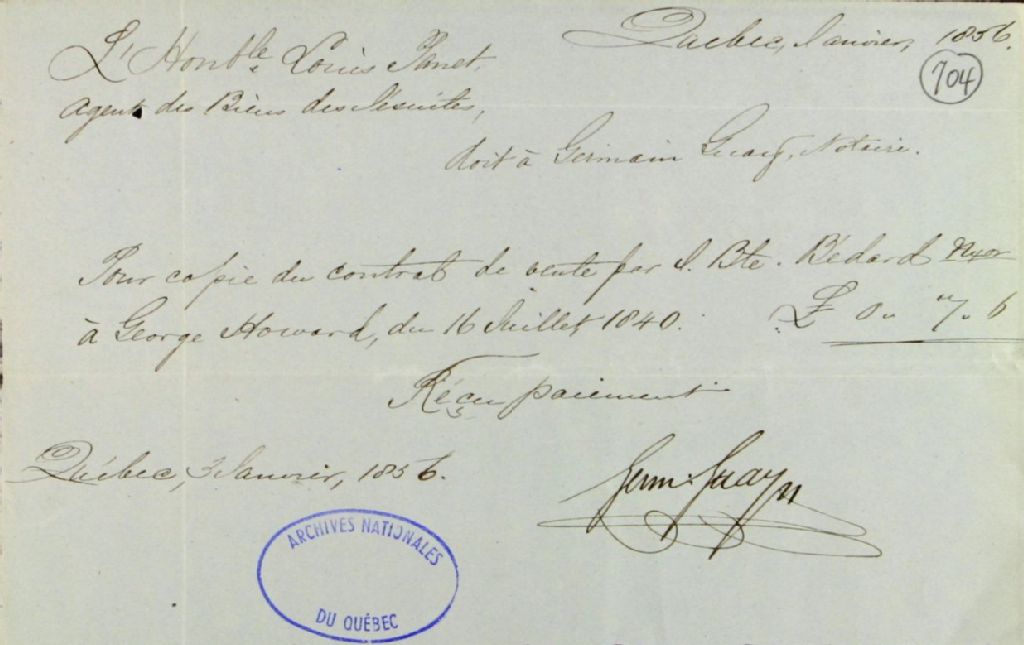 Québec, Janvier, 1856.
704
L'Honble Louis Panet,
agent des Biens des Jésuites,
doit à Germain Guay, Notaire.
Pour copie du contrat de vente par J. Bte. Bédard
à George Howard, du 16 Juillet 1840. £ 0 " 7 " 6
Réçu paiement
Québec, 3 Janvier, 1856.
Germ. Guay
ARCHIVES NATIONALES
DU QUÉBEC